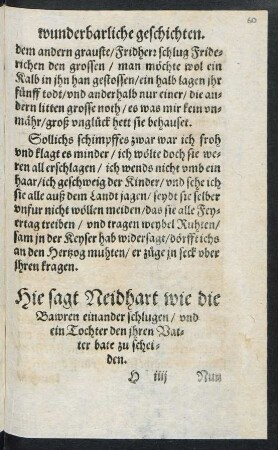 60
wunderbarliche geschichten.
dem andern grauste/Fridherr schlug Fride-
richen den grossen / man möchte wol ein
Kalb in jhn han gestossen/ein halb lagen jhr
fünff todt/vnd anderhalb nur einer/die an-
dern litten grosse noth/es was mir kein vn-
mähr/groß vnglück hett sie behauset.
Sollichs schimpffes zwar war ich froh
vnd klagt es minder/ich wölte doch sie we-
ren all erschlagen/ich wends nicht vmb ein
haar/ich geschweig der Kinder/vnd sehe ich
sie alle auß dem Landt jagen/seydt sie selber
vnfur nicht wöllen meiden/das sie alle Fey-
ertag treiben / vnd tragen weybel Ruhten/
sam jn der Keyser hab widersagt/dörfft ichs
an den Hertzog muhten/er züge in seck vber
jhren kragen.
Hie sagt Neidhart wie die
Bawren einander schlugen/vnd
ein Tochter den jhren Vat-
ter bate zu schei-
den.
H iiij Nun